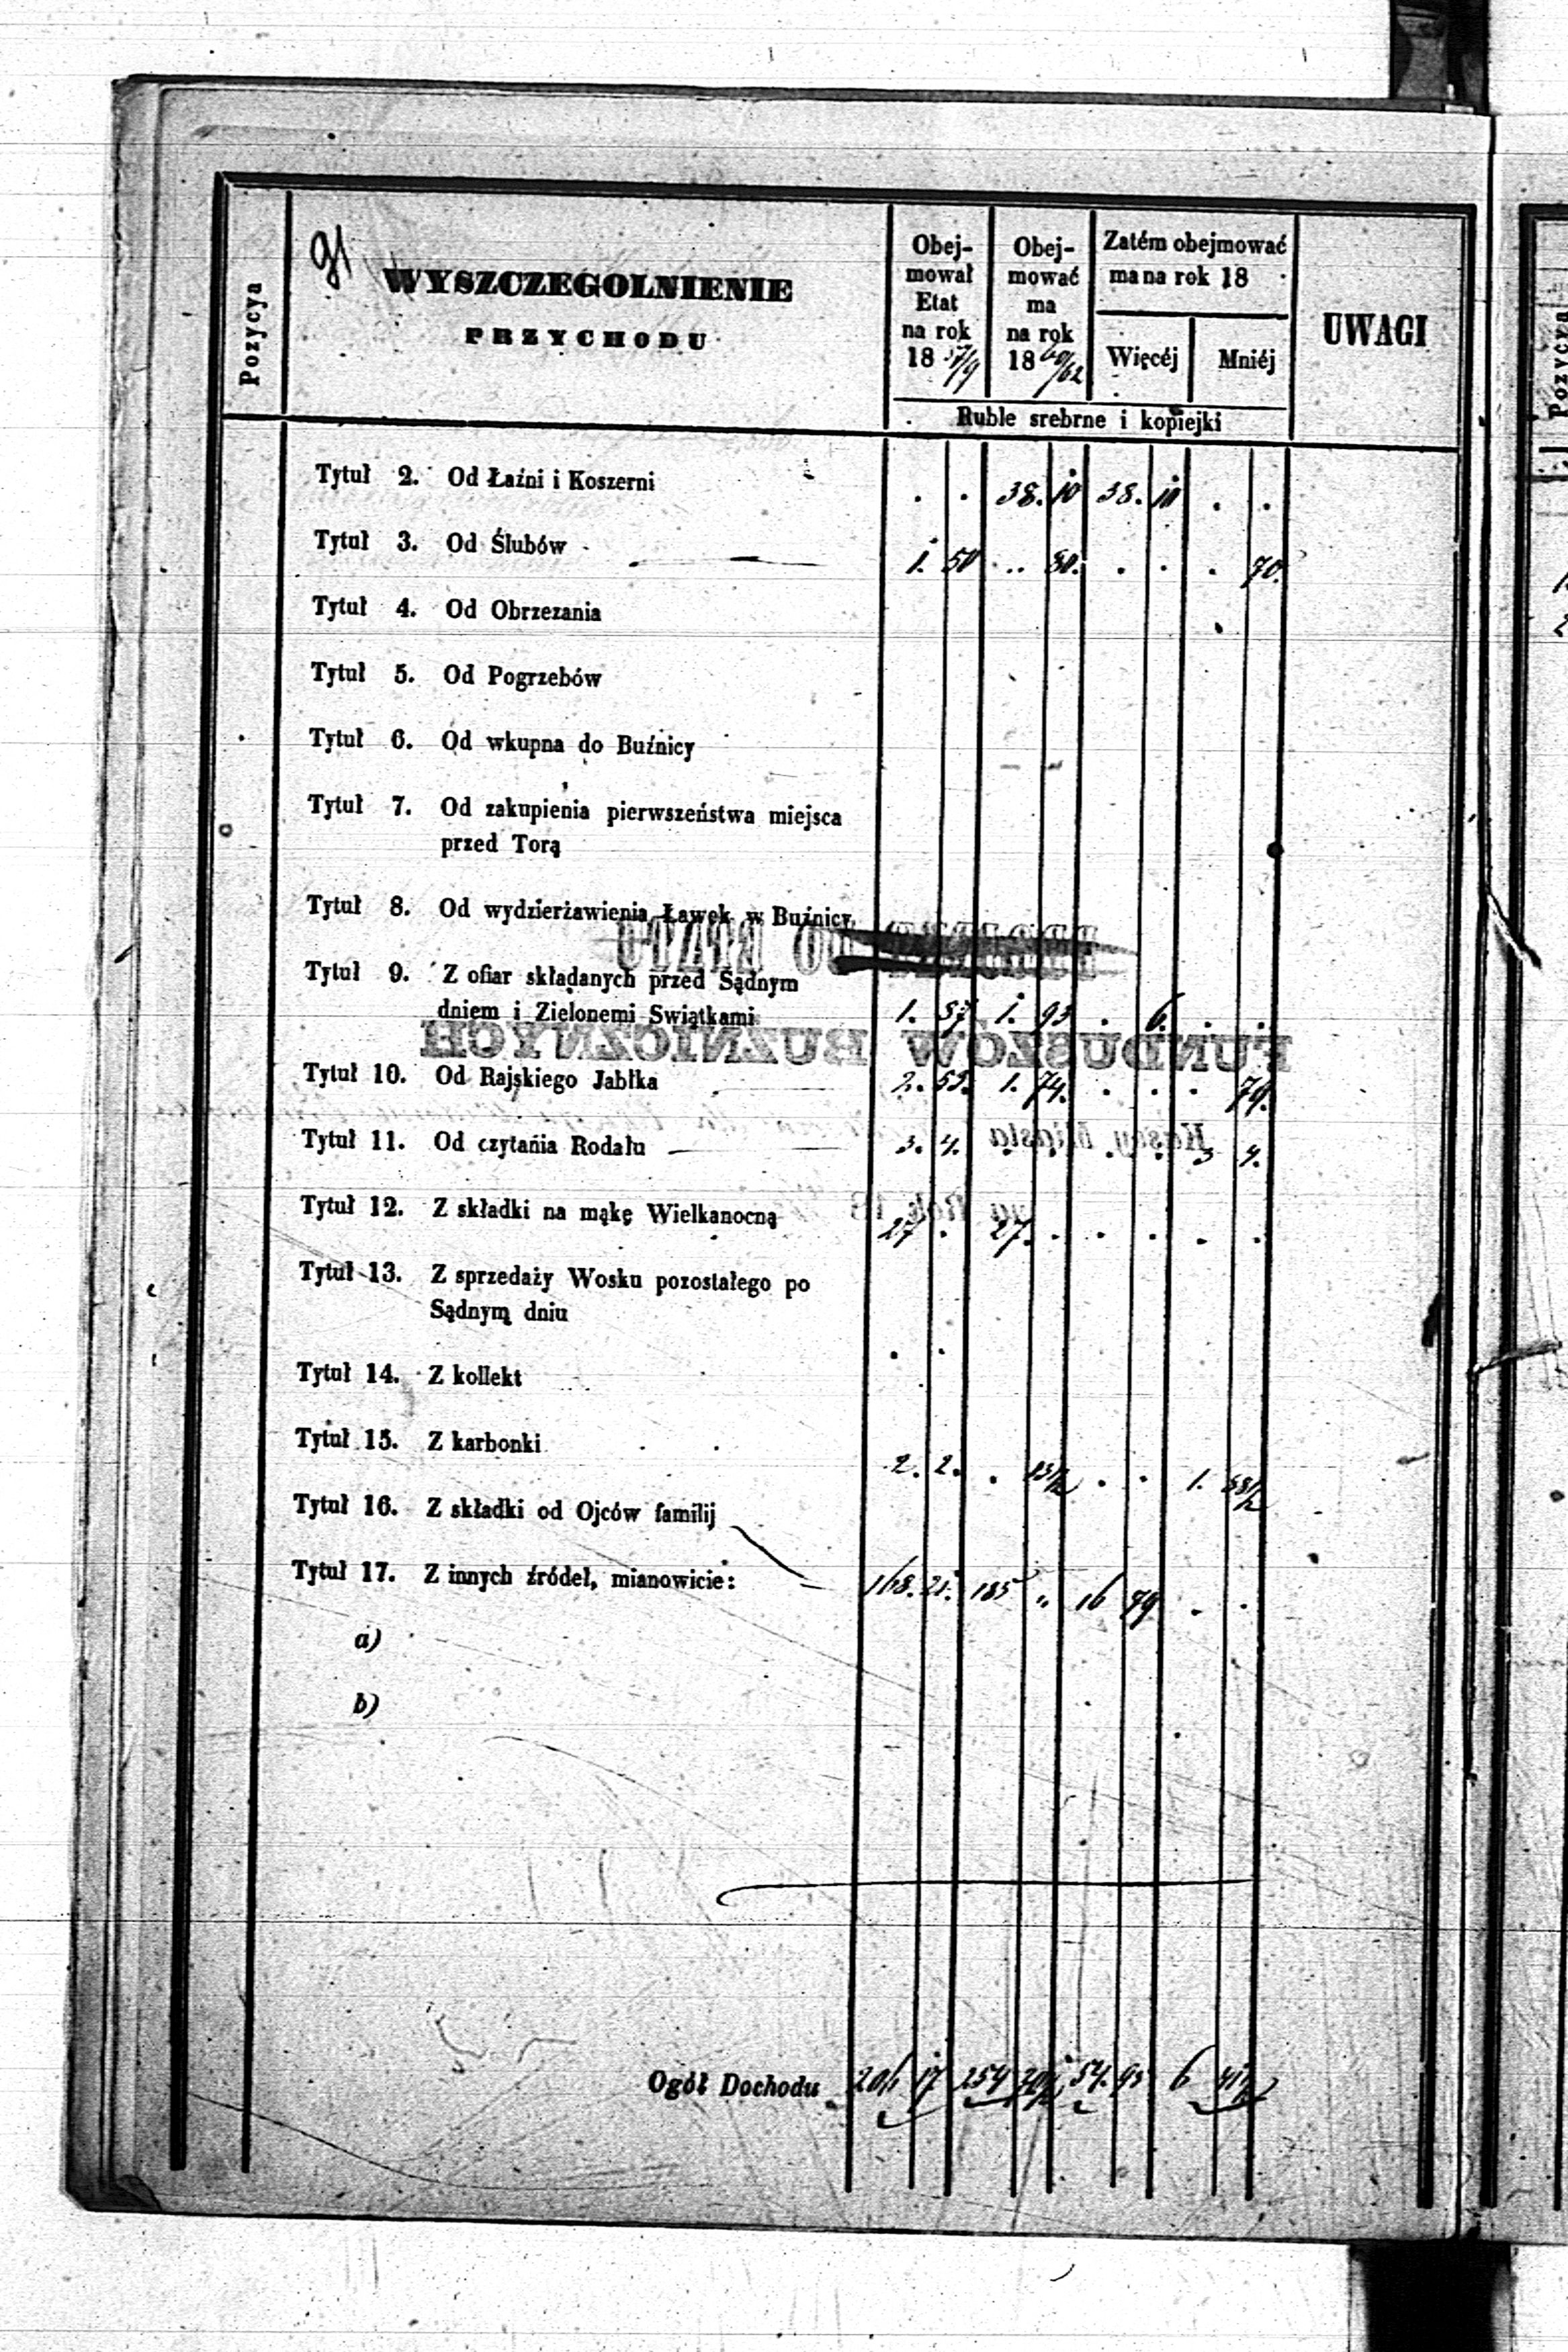 91
Pozycya
WYSZCZEGOLNIENIE
PRZYCHODU
Obej-
mował
Etat
na rok
18 57/9
Obej-
mować
ma
na rok
18 60/62
Zatém obejmować
ma na rok 18
Więcéj
Mniéj
Ruble srebrne i kopiejki
UWAGI
Tytuł 2. Od Łaźni i Koszerni . . 38. 10 38. 10 . .
Tytuł 3. Od Ślubów 1. 50 .. 80. . . . 70.
Tytuł 4. Od Obrzezania
Tytuł 5. Od Pogrzebów
Tytuł 6. Od wkupna do Buźnicy
Tytuł 7. Od zakupienia pierwszeństwa miejsca
przed Torą
Tytuł 8. Od wydzierżawienia Ławek w Buźnicy
Tytuł 9. Z ofiar składanych przed Sądnym
dniem i Zielonemi Swiątkami 1. 87 1. 93 . 6. . .
FUNDUSZÓW BUZNICZNYCH
Tytuł 10. Od Rajskiego Jabłka 2. 53. 1. 74. . . . 79.
Kassy Miasta
Tytuł 11. Od czytania Rodału 3. 4. . . . . 3 4.
na Rok 18
Tytuł 12. Z składki na mąkę Wielkanocną 27 . 27. . . . . .
Tytuł 13. Z sprzedaży Wosku pozostałego po
Sądnym dniu
Tytuł 14. Z kollekt
Tytuł 15. Z karbonki 2. 2. . 13 1/2 . . 1. 88 1/2
Tytuł 16. Z składki od Ojców familij
Tytuł 17. Z innych źródeł, mianowicie: 168. 21. 185 " 16 79 . .
a)
b)
Ogół Dochodu 206 17 254 70 1/2 54. 95 6 41 1/2